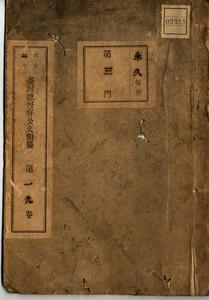 永久保存
第三門
臺灣總督府公文類纂
第一九卷